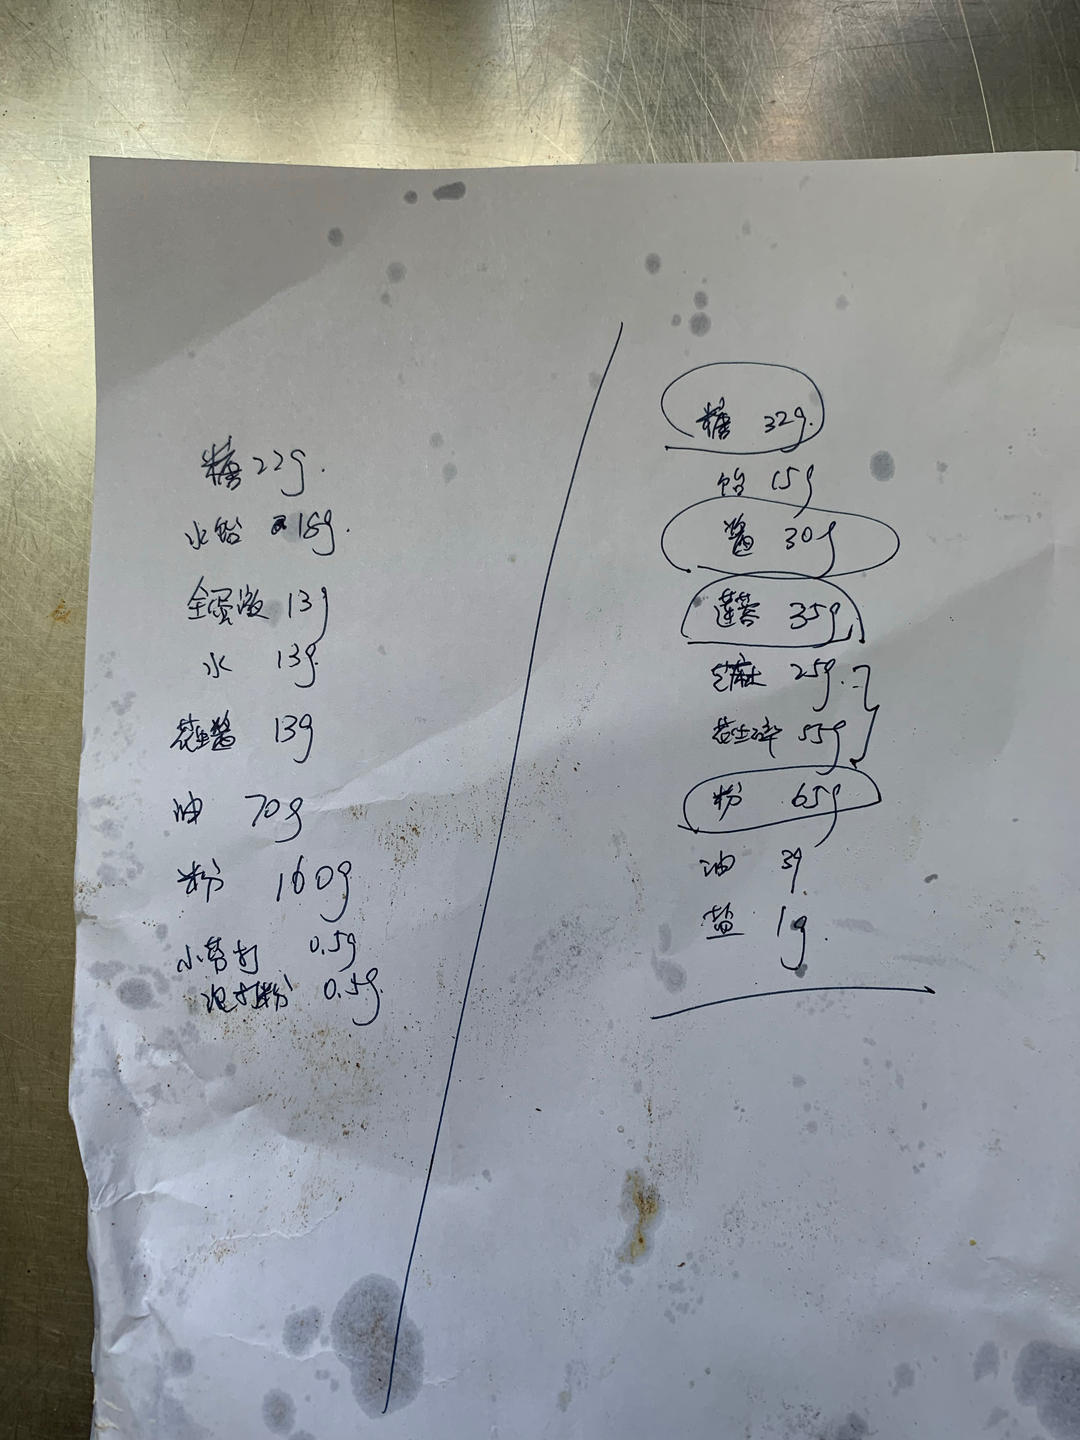 糖 22g.
水饴 18g.
全蛋液 13g
水 13g.
花生酱 13g
油 70g
粉 160g
小苏打 0.5g
泡打粉 0.5g.
糖 32g.
饴 15g
酱 30g
莲蓉 35g
芝麻 25g.
花生碎 55g
粉 65g
油 3g.
盐 1g.